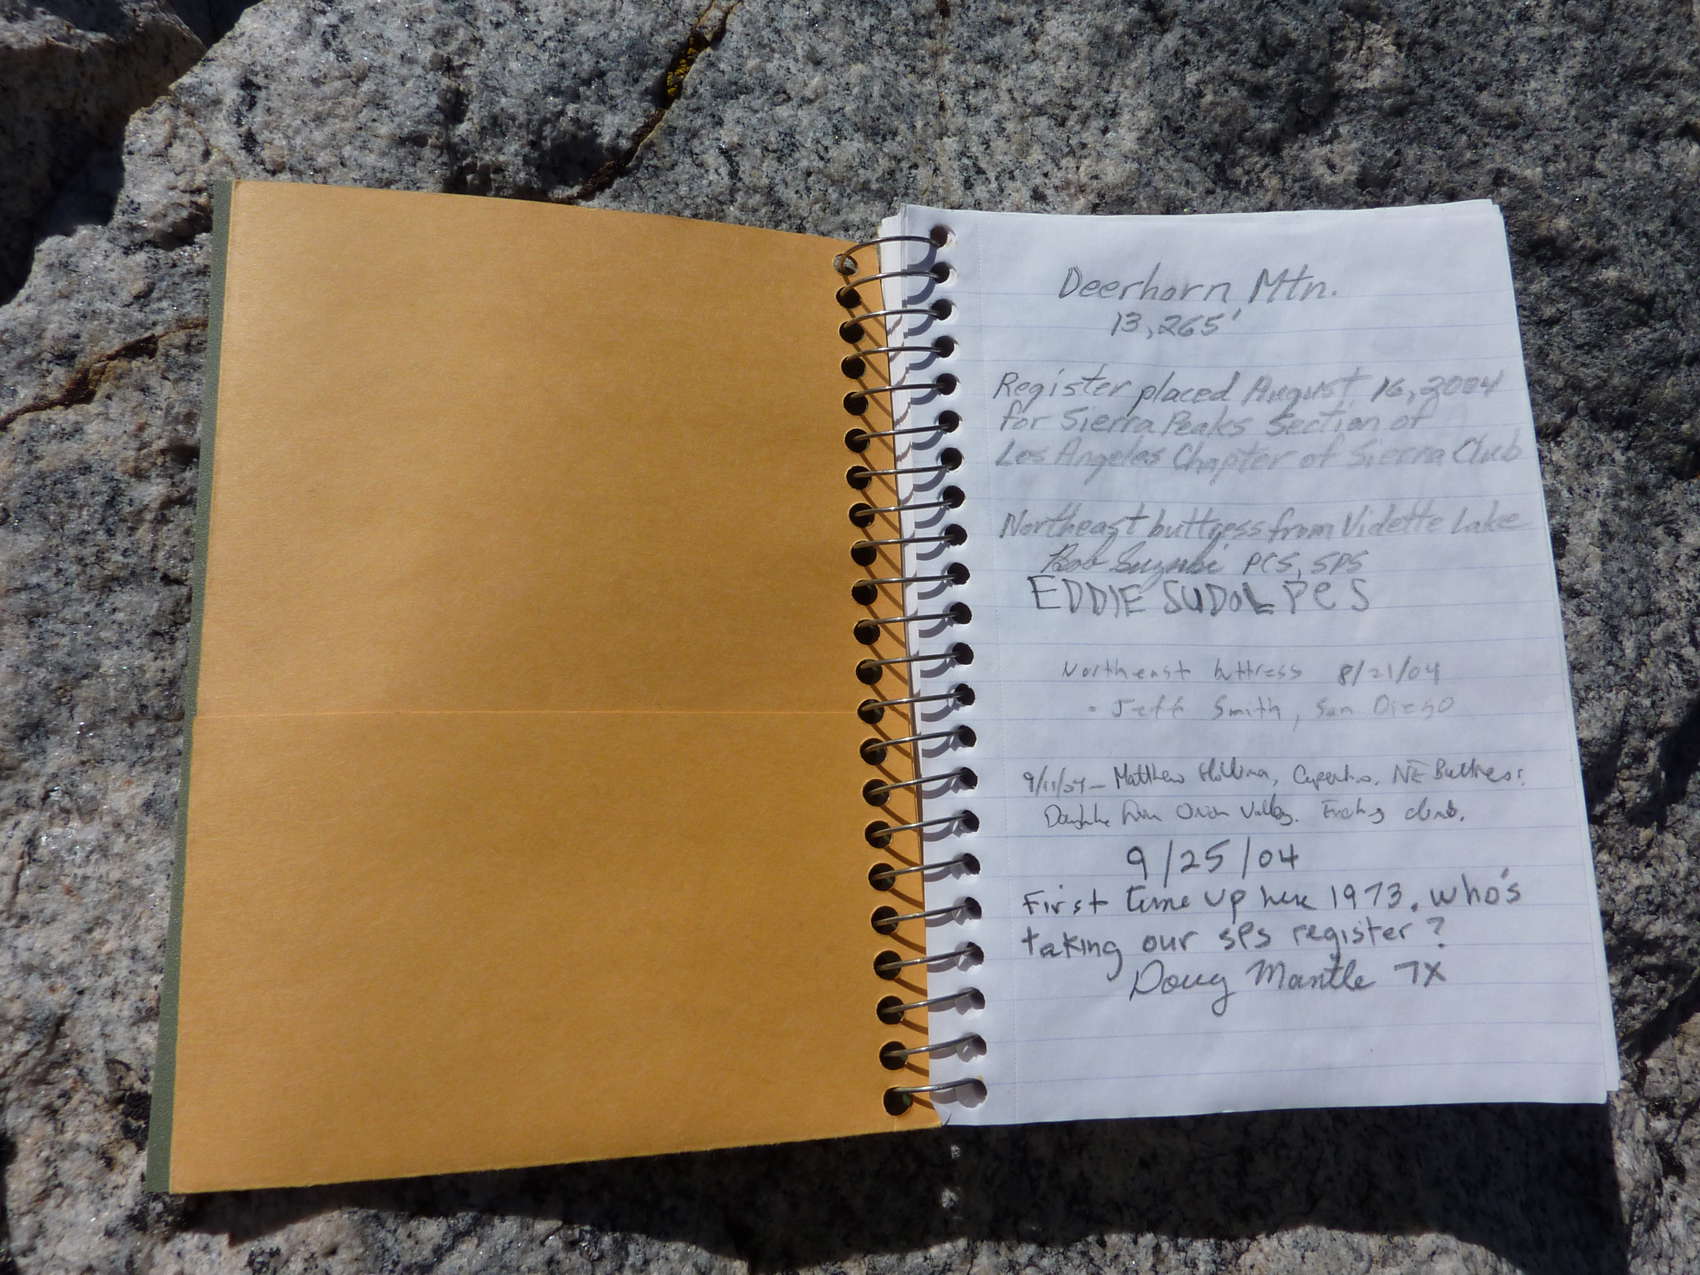 Deerhorn Mtn.
13,265'
Register placed August 16, 2004
for Sierra Peaks Section of
Los Angeles Chapter of Sierra Club
Northeast buttress from Vidette Lake
PCS, SPS
EDDIE SUDOL PCS
Northeast buttress 8/21/04
- Jeff Smith, San Diego
9/11/04 - Matthew Cupertino. NE Buttress;
Valley. climb.
9/25/04
First time up here 1973. who's
taking our SPS register?
Doug Mantle 7X